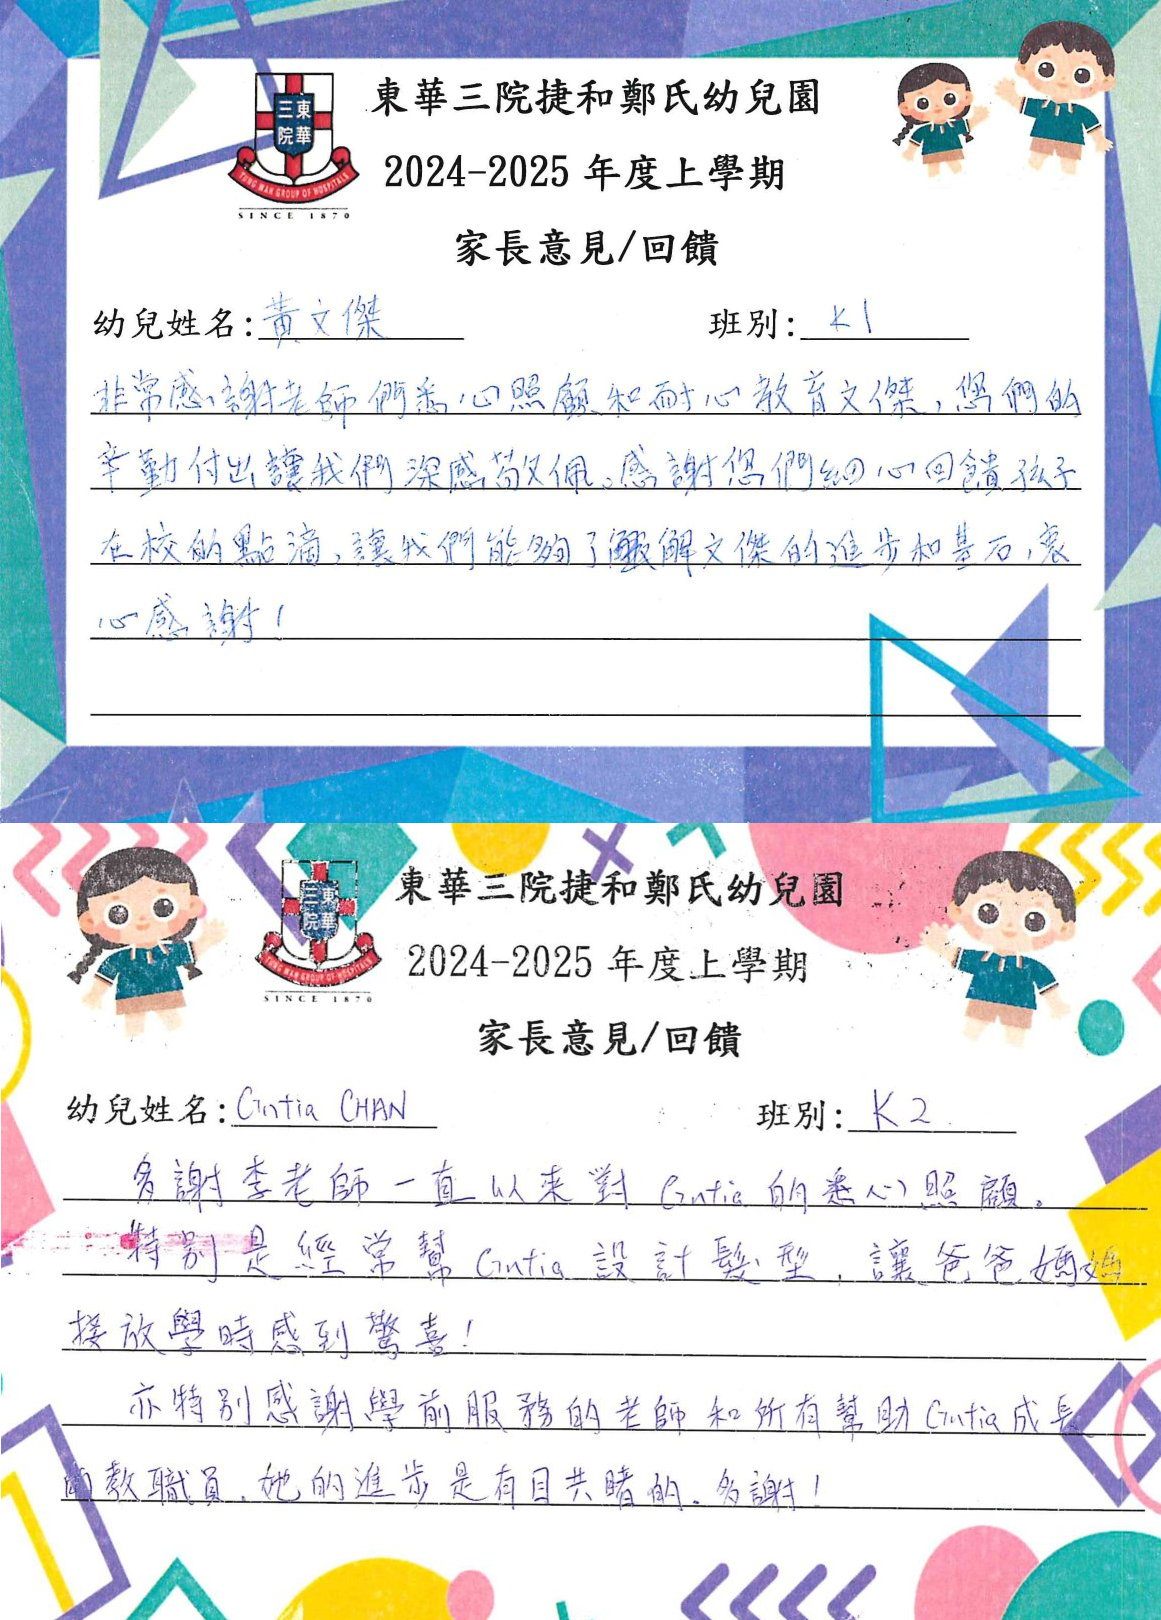 東華三院捷和鄭氏幼兒園
三東
院華
TUNG WAH GROUP OF HOSPITALS
SINCE 1870
2024-2025 年度上學期
家長意見/回饋
幼兒姓名:黃文傑 班別: K1
非常感謝老師們悉心照顧和耐心教育文傑,您們的
辛勤付出讓我們深感敬佩。感謝您們細心回饋孩子
在校的點滴,讓我們能夠了解文傑的進步和基石,衷
心感謝!
東華三院捷和鄭氏幼兒園
三東
院華
TUNG WAH GROUP OF HOSPITALS
SINCE 1870
2024-2025 年度上學期
家長意見/回饋
幼兒姓名:Cintia CHAN 班別: K2
多謝李老師一直以來對 Cintia 的悉心照顧。
特別是經常幫 Cintia 設計髮型,讓爸爸媽媽
接放學時感到驚喜!
亦特別感謝學前服務的老師和所有幫助 Cintia 成長
的教職員,她的進步是有目共睹的。多謝!